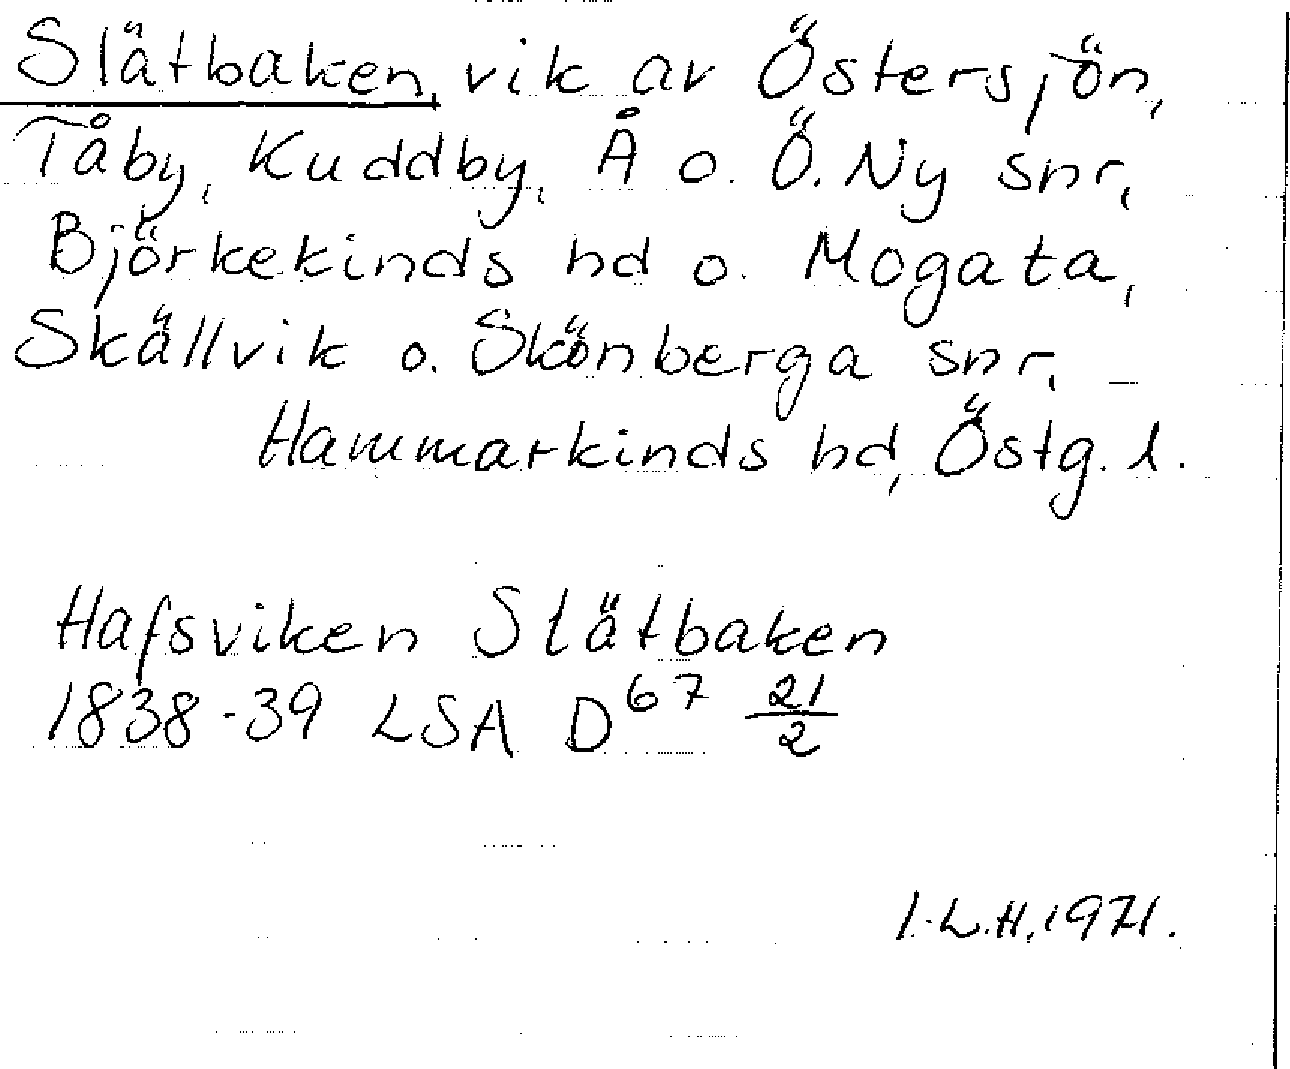 Slätbaken, vik av Östersjön,
Tåby, Kuddby, Å o. Ö. Ny snr,
Björkekinds hd o. Mogata,
Skällvik o. Skönberga snr,
Hammarkinds hd, Östg. l.
Hafsviken Slätbaken
1838-39 LSA D⁶⁷ 21/2
I.L.H. 1971.